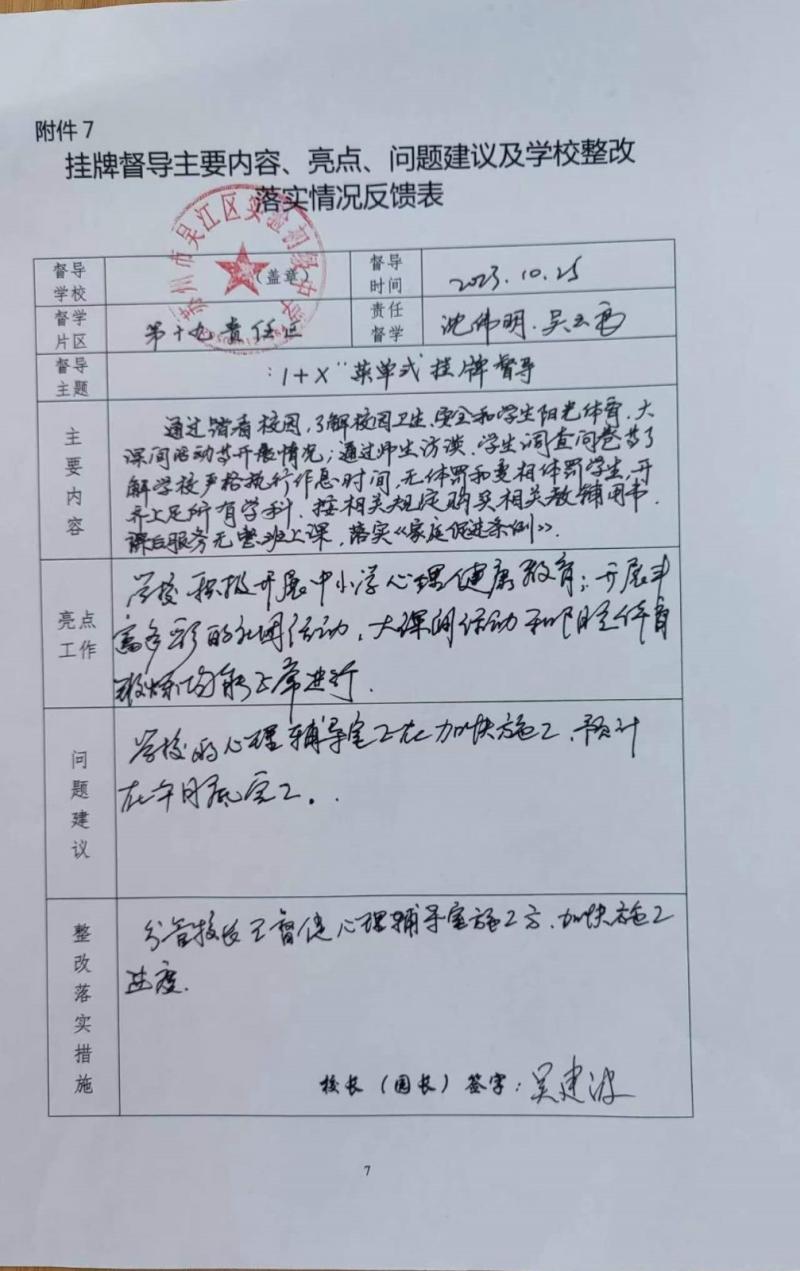 附件7
挂牌督导主要内容、亮点、问题建议及学校整改
落实情况反馈表
苏州市吴江区实验初级中学
督导学校
(盖章)
督导时间
2023.10.25
督学片区
第十九责任区
责任督学
沈伟明、吴云
督导主题
"1+X"菜单式挂牌督导
主要内容
通过踏看校园,了解校园卫生、安全和学生阳光体育、大
课间活动等开展情况;通过师生访谈、学生调查问卷等了
解学校严格执行作息时间,无体罚和变相体罚学生,开
齐上足所有学科,按相关规定购买相关教辅用书,
课后服务无整班上课,落实《家庭促进条例》.
亮点工作
学校积极开展中小学心理健康教育;开展丰
富多彩的社团活动,大课间活动和阳光体育
锻炼均能正常进行.
问题建议
学校的心理辅导室正在加快施工,预计
在年底完工。
整改落实措施
分管校长正督促心理辅导室施工方,加快施工
进度.
校长(园长)签字:吴建波
7